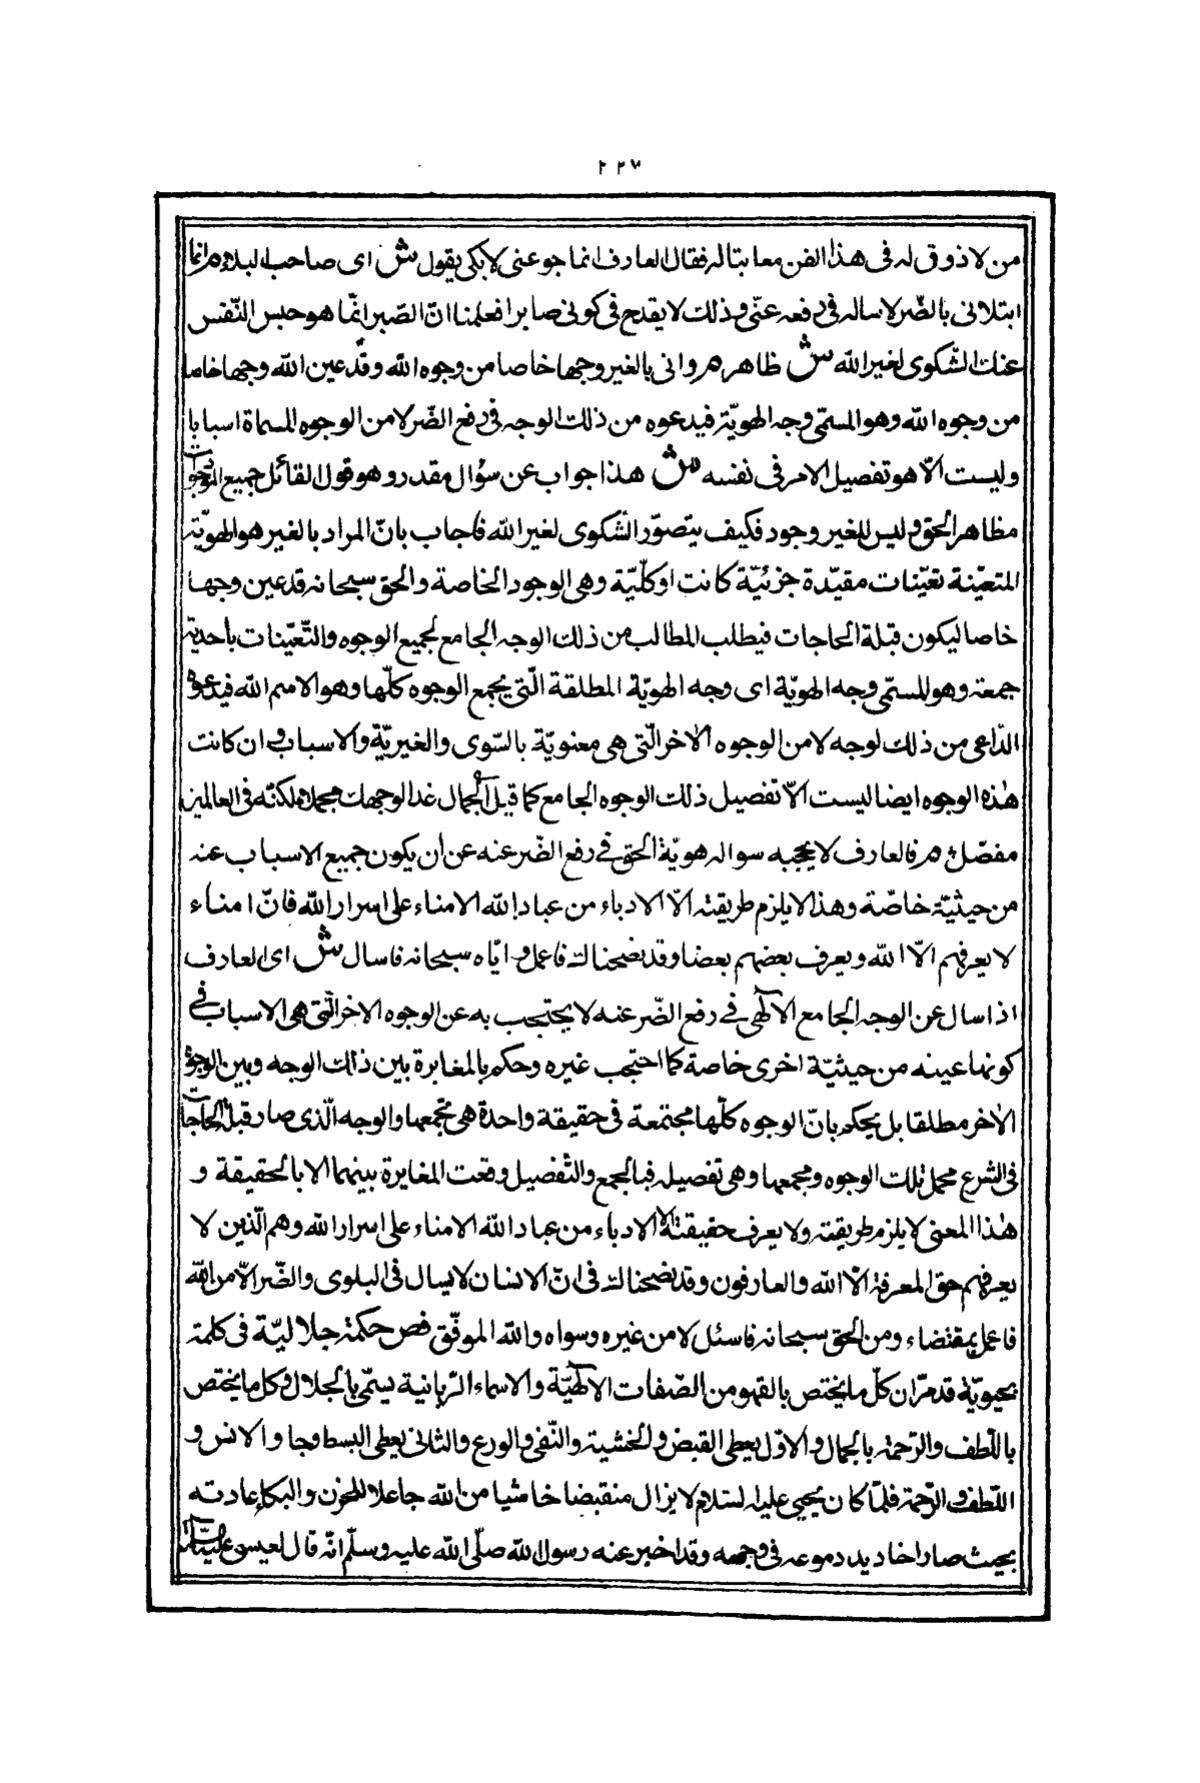 ٢٢٧
من لا ذوق له فى هذا الفن معاتبا له فقال العارف انما جوعنى لابكى يقول ش اى صاحب البلاء م انما
ابتلانى بالضّر لاساله فى دفعه عنّى وذلك لا يقدح فى كونى صابرا فعلمنا انّ الصّبر انّما هو حبس النّفس
عن الشّكوى لغير الله ش ظاهر م واعنى بالغير وجها خاصا من وجوه الله وقد عين الله وجها خاصا
من وجوه الله وهو المسمّى وجه الهويّة فيدعوه من ذلك الوجه فى دفع الضّر لا من الوجوه المسماة اسبابا
وليست الاّ هو تفصيل الامر فى نفسه ش هذا جواب عن سؤال مقدر وهو قول القائل جميع الموجودات
مظاهر الحق وليس للغير وجود فكيف يتصوّر الشّكوى لغير الله فاجاب بانّ المراد بالغير هو الهويّة
المتعيّنة تعيّنات مقيّدة جزئيّة كانت او كلّيّة وهى الوجود الخاصة والحق سبحانه قد عين وجها
خاصا ليكون قبلة الحاجات فيطلب المطالب من ذلك الوجه الجامع لجميع الوجوه والتّعيّنات باحدية
جمعته وهو المسمّى وجه الهويّة اى وجه الهويّة المطلقة الّتى يجمع الوجوه كلّها وهو الاسم الله فيدعوه
الدّاعى من ذلك لوجه لا من الوجوه الاخر الّتى هى معنويّة بالسّوى والغيريّة والاسباب وان كانت
هذه الوجوه ايضا ليست الاّ تفصيل ذلك الوجوه الجامع كما قيل كل الجمال غدا لوجهك مجملا لكنه فى العالمين
مفصّل م فالعارف لا يحجبه سواله هويّة الحق فى رفع الضّر عنه عن ان يكون جميع الاسباب عنه
من حيثيّة خاصّة وهذا لا يلزم طريقته الاّ الادباء من عباد الله الامناء على اسرار الله فانّ امناء
لا يعرفهم الاّ الله ويعرف بعضهم بعضا وقد نصحنا لك فاعمل وايّاه سبحانه فاسال ش اى العارف
اذا سال عن الوجه الجامع الالهى فى رفع الضّر عنه لا يحتجب به عن الوجوه الاخر الّتى هى الاسباب فى
كونها عينه من حيثيّة اخرى خاصة كما احتجب غيره وحكم بالمغايرة بين ذلك الوجه وبين الوجوه
الاخر مطلقا بل يحكم بانّ الوجوه كلّها مجتمعة فى حقيقة واحدة هى مجمعها والوجه الّذى صار قبلة الحاجات
فى الشرع مجمل تلك الوجوه ومجمعها وهى تفصيله فبالجمع والتّفصيل وقعت المغايرة بينهما لا بالحقيقة و
هذا المعنى لا يلزم طريقته ولا يعرف حقيقته الا الادباء من عباد الله الامناء على اسرار الله وهم الّذين لا
يعرفهم حق المعرفة الاّ الله والعارفون وقد نصحنا لك فى انّ الانسان لا يسال فى البلوى والضّر الاّ من الله
فاعمل بمقتضاء ومن الحق سبحانه فاسئل لا من غيره وسواه والله الموفّق فص حكمة جلاليّة فى كلمة
يحيويّة قد مرّ ان كلّ ما يختص بالقهر من الصّفات الالهيّة والاسماء الرّبانية يسمّى بالجلال وكل ما يختص
باللّطف والرّحمة بالجمال والاوّل يعطى القبض والخشية والتّقى والورع والثانى يعطى البسط وجا والانس و
اللّطف والرّحمة فلمّا كان يحيى عليه السّلام لا يزال منقبضا خاشيا من الله جاعلا للحزن والبكاء عادته
بحيث صار اخاديد دموعه فى وجهه وقد اخبر عنه رسول الله صلّى الله عليه وسلّم انّه قال لعيسى عليهما السّلام